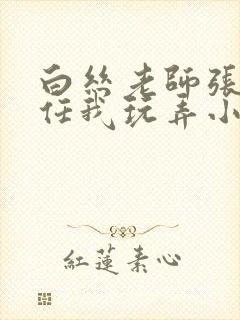 白絲老師張
任我玩弄小
紅蓮素心